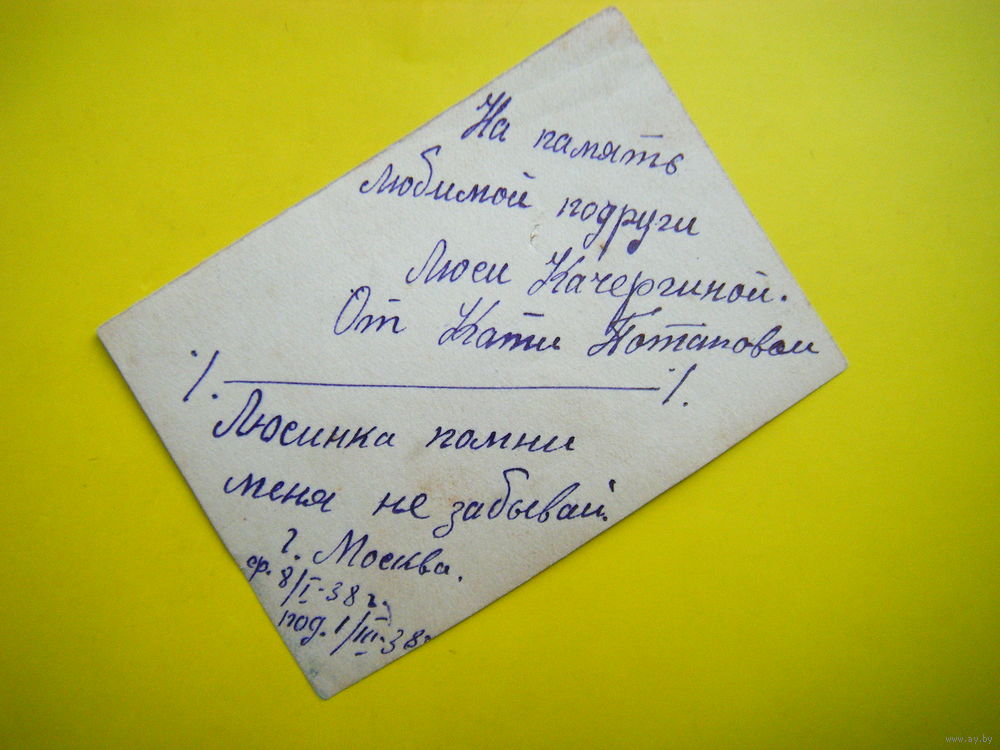 На память
любимой подруги
Люси Качергиной.
От Кати Потаповой
Люсинка помни
меня не забывай.
г. Москва.
ф. 8/I-38 г.
под. 1/III-38 г
www.ay.by